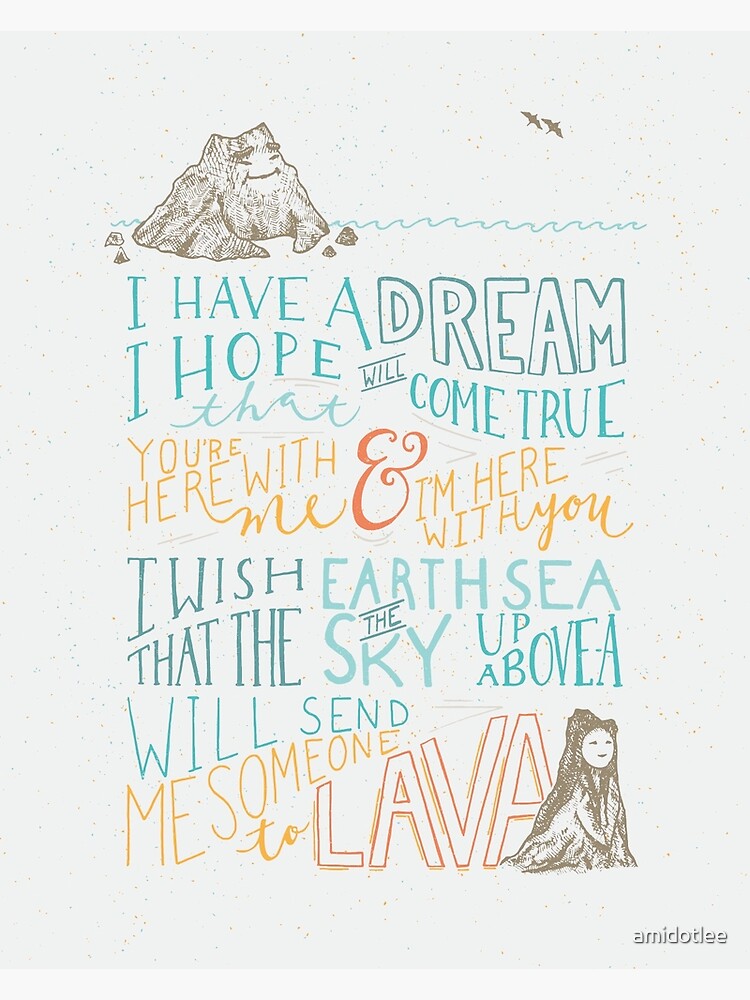 I HAVE A DREAM
I HOPE that WILL COME TRUE
YOU'RE HERE WITH me & I'M HERE WITH you
I WISH THAT THE EARTH SEA
THE SKY UP ABOVE-A
WILL SEND
ME SOMEONE to LAVA
amidotlee